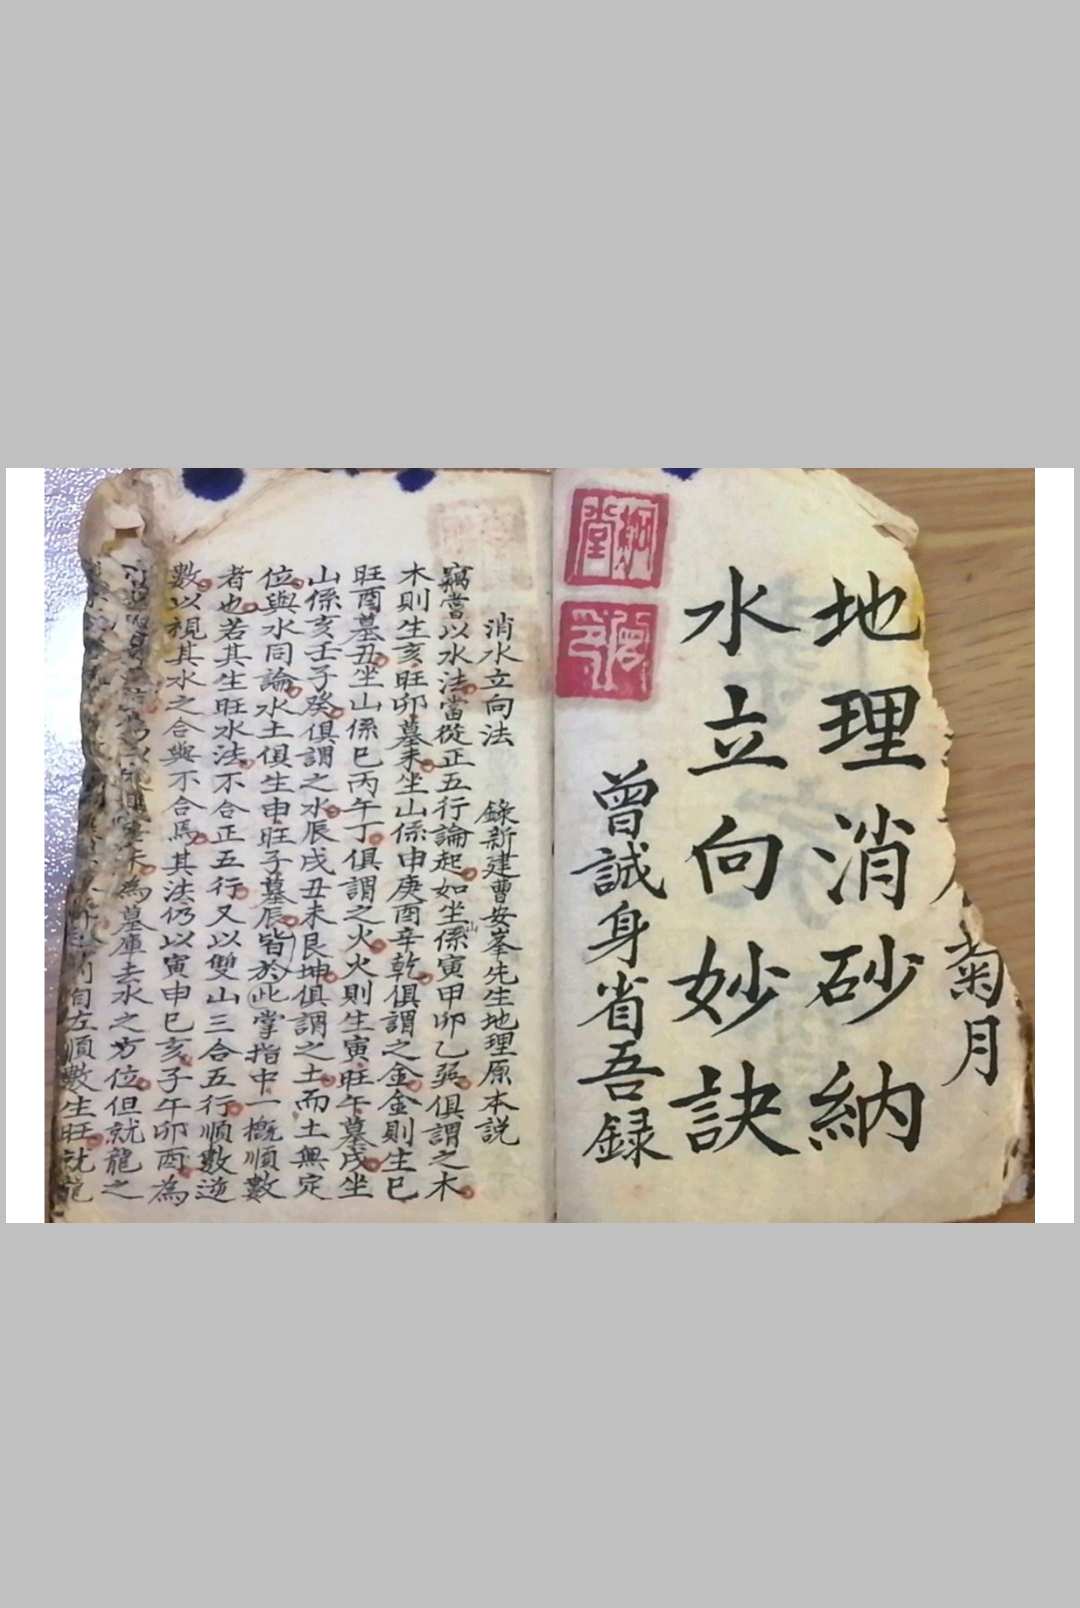 菊月
地理消砂納
水立向妙訣
曾誠身省吾録
消水立向法 錄新建曹安峯先生地理原本説
竊嘗以水法當從正五行論起如坐山係寅甲卯乙巽俱謂之木
木則生亥旺卯墓未坐山係申庚酉辛乾俱謂之金金則生巳
旺酉墓丑坐山係巳丙午丁俱謂之火火則生寅旺午墓戌坐
山係亥壬子癸俱謂之水辰戌丑未艮坤俱謂之土而土無定
位與水同論水土俱生申旺子墓辰皆於此掌指中一概順數
者也若其生旺水法不合正五行又以雙山三合五行順數逆
數以視其水之合與不合焉其法仍以寅申巳亥子午卯酉為
為墓庫去水之方位但就龍之
左順數生旺